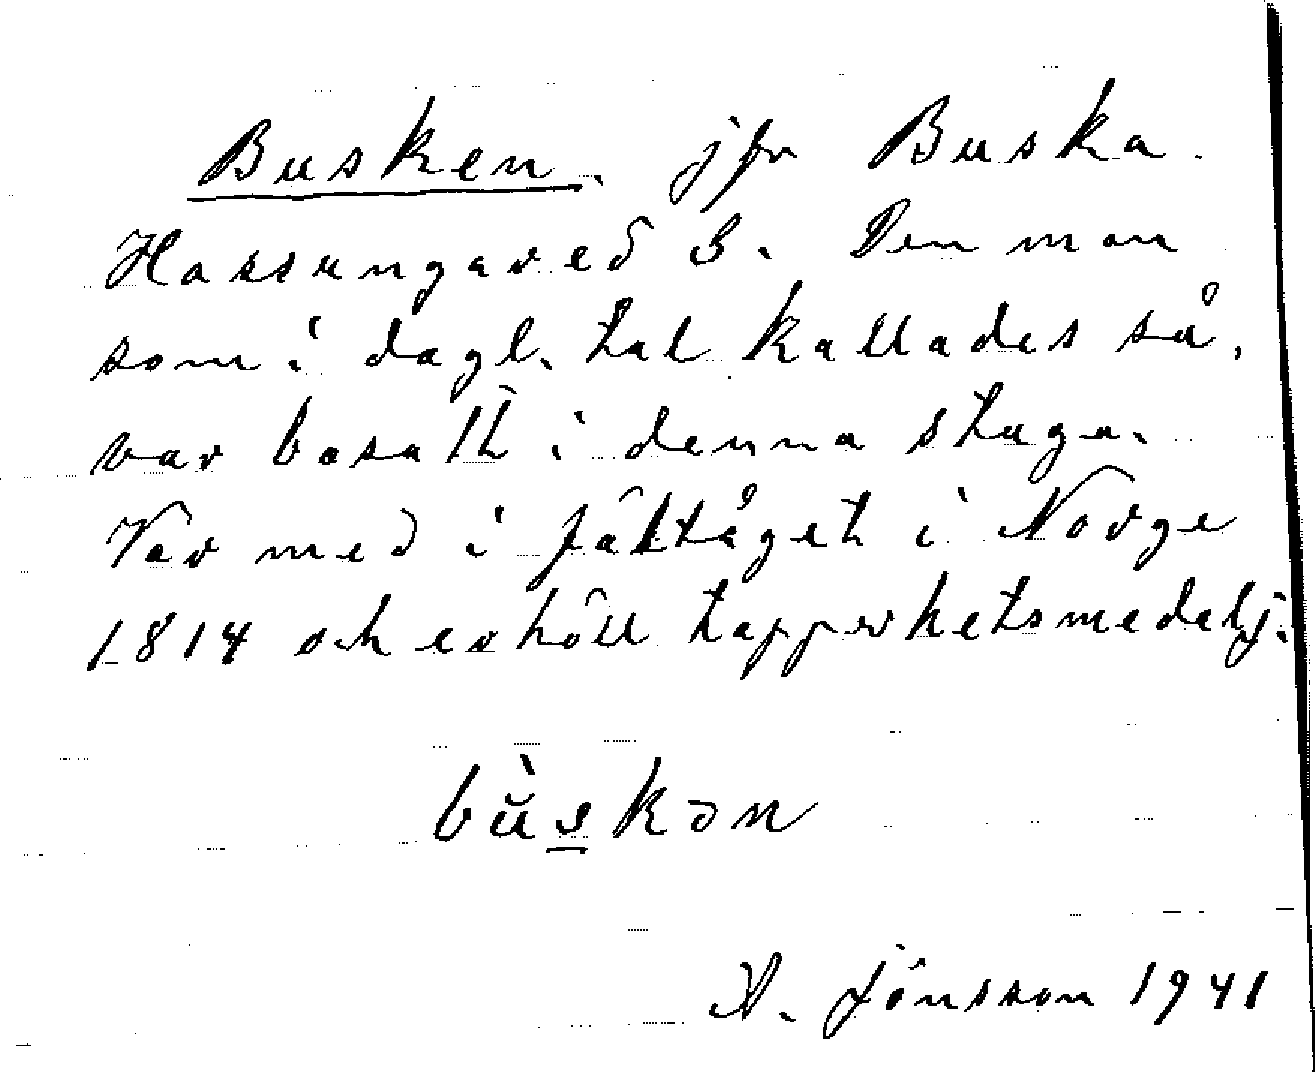 Busken. jfr Buska.
Hassungared 3. Den man
som i dagl. tal kallades så,
var bosatt i denna stuga.
Var med i fälttåget i Norge
1814 och erhöll tapperhetsmedalj.
bùskən
A. Jönsson 1941